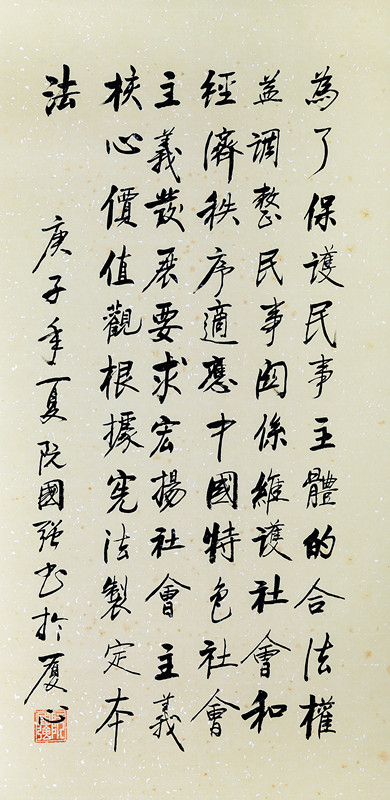 為了保護民事主體的合法權
益調整民事関係維護社會和
經濟秩序適應中國特色社會
主義發展要求宏揚社會主義
核心價值觀根據憲法製定本
法
庚子年夏阮國强书於厦